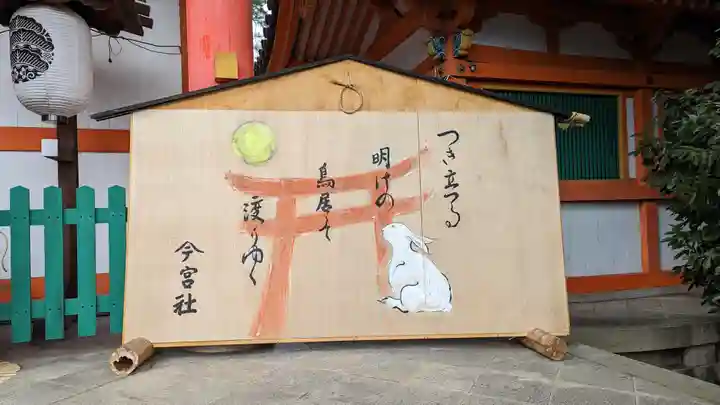 つき立つる
明けの
鳥居を
渡りゆく
今宮社